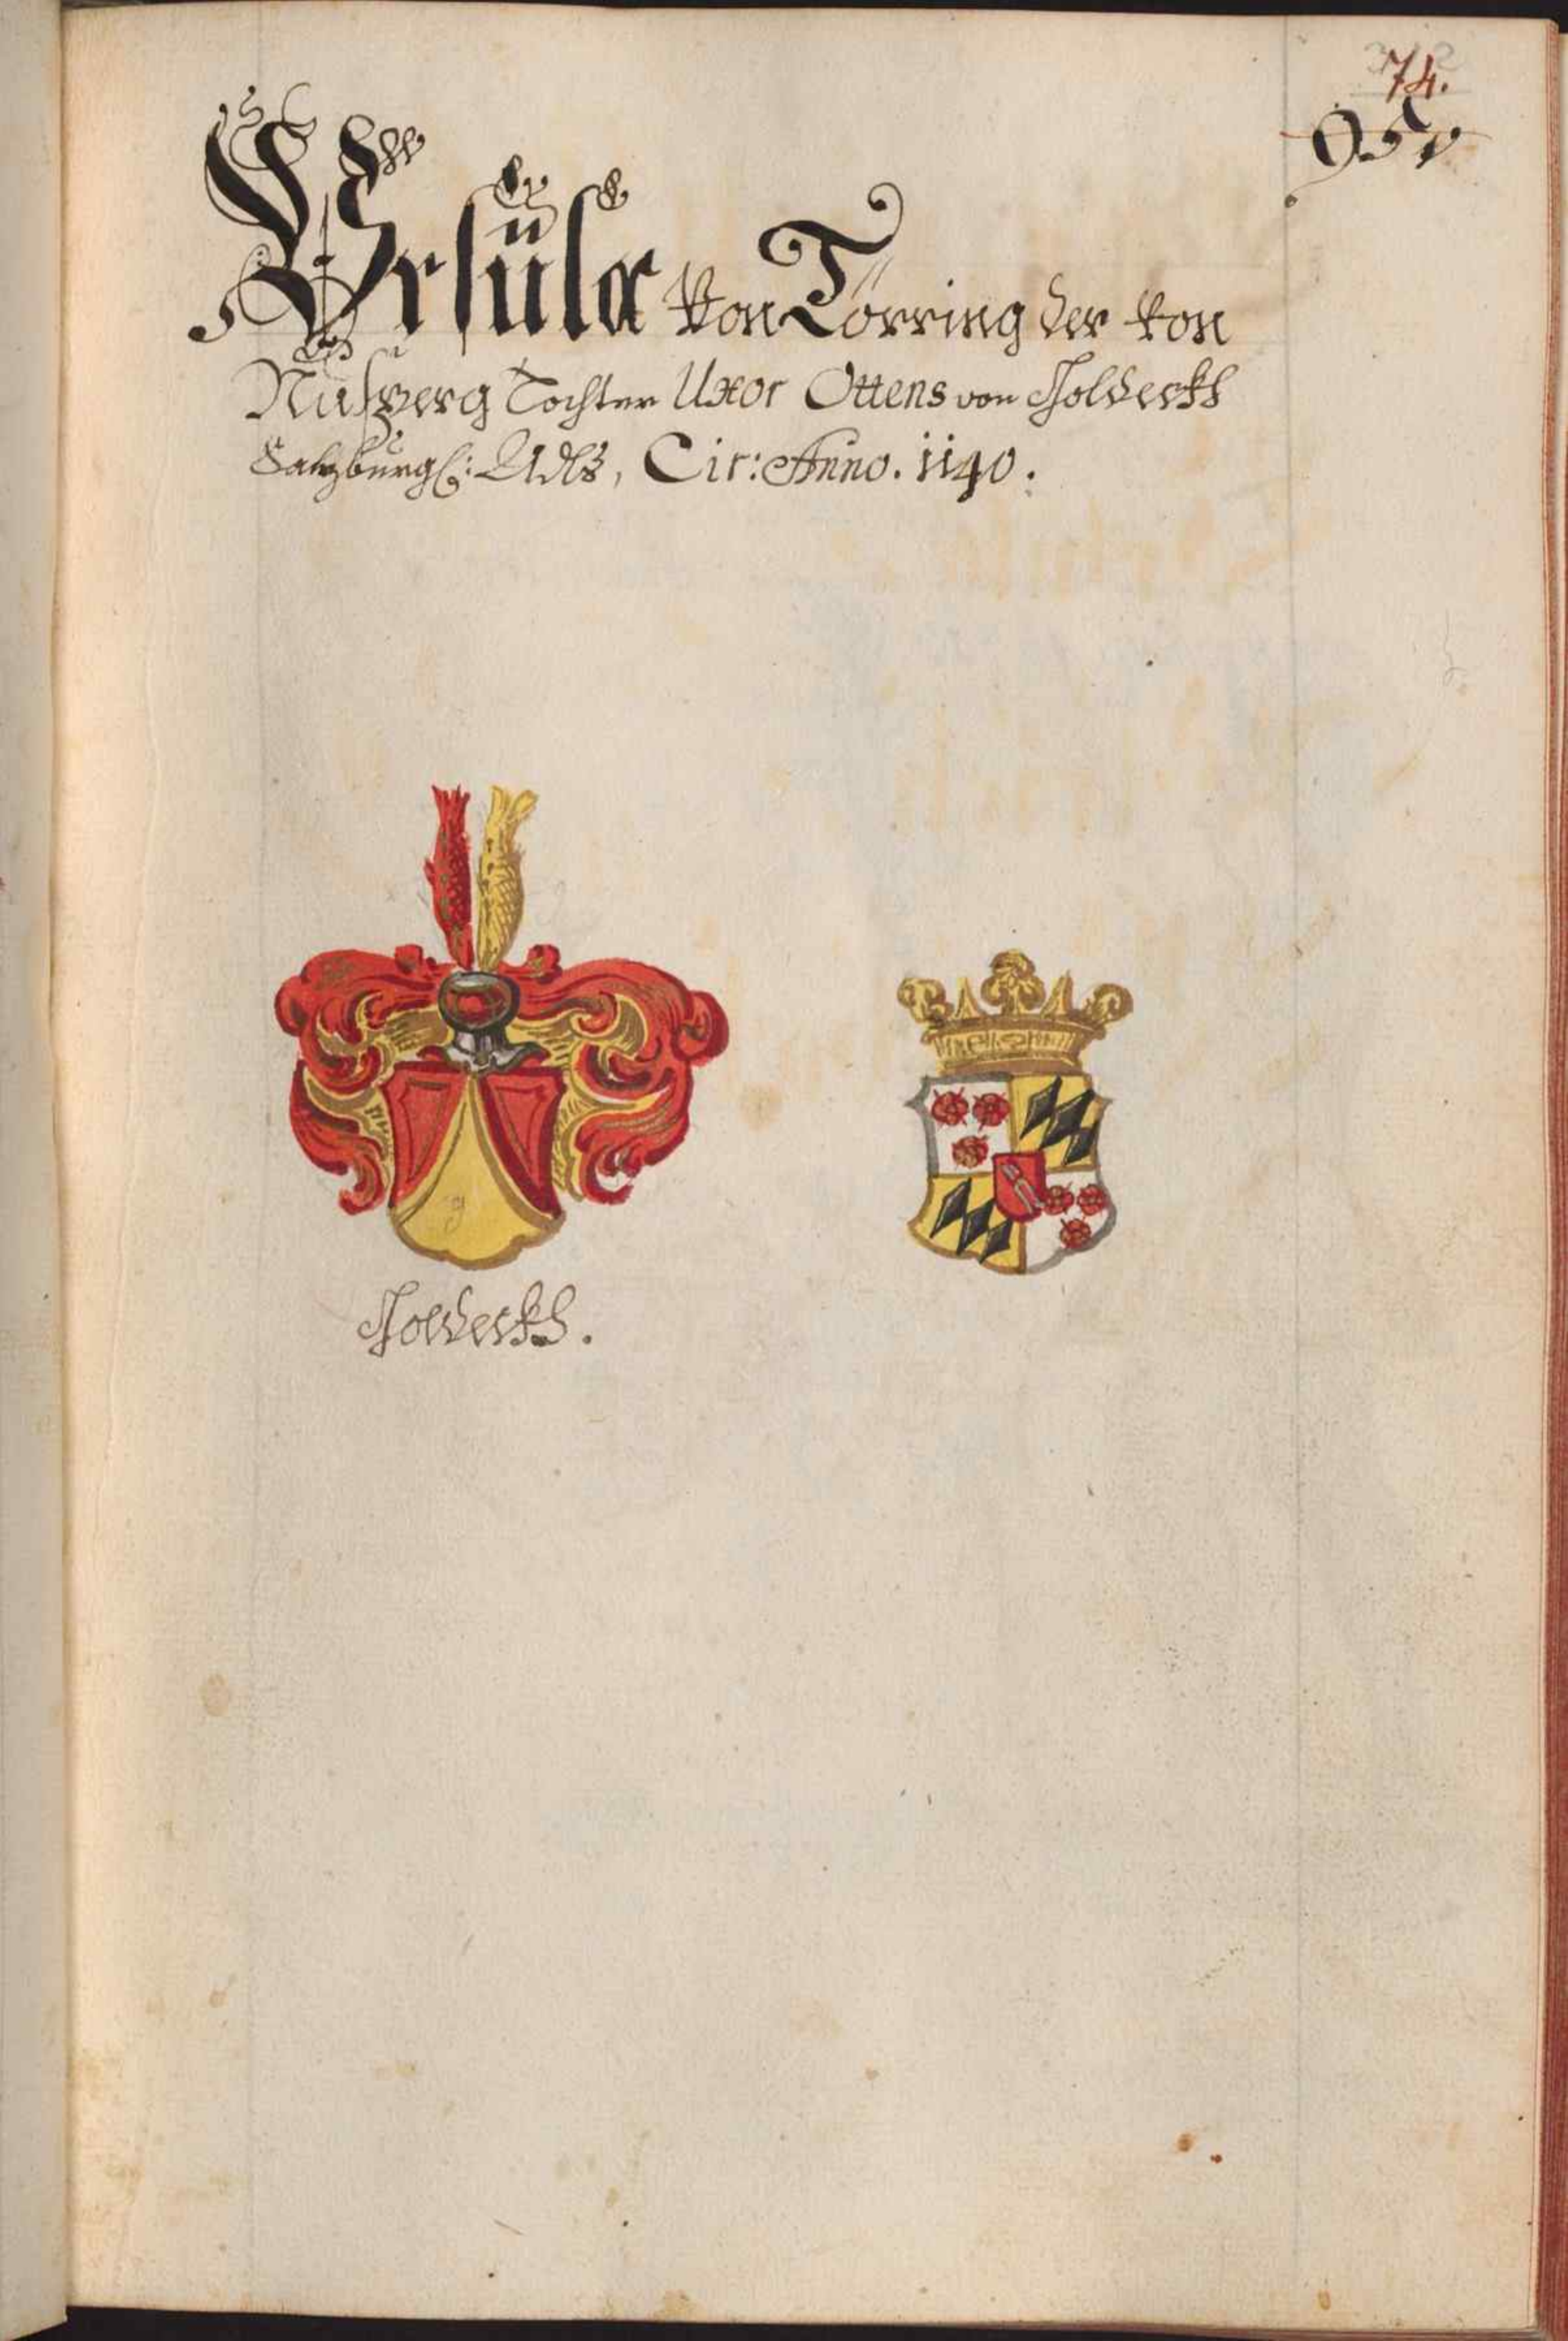 74.
Ursüla von Törring der von
Nusperg Tochter Uxor Ottens von Goldeckh
Saltzburg: Adls, Cir: Anno. 1140.
g
Goldeckh.